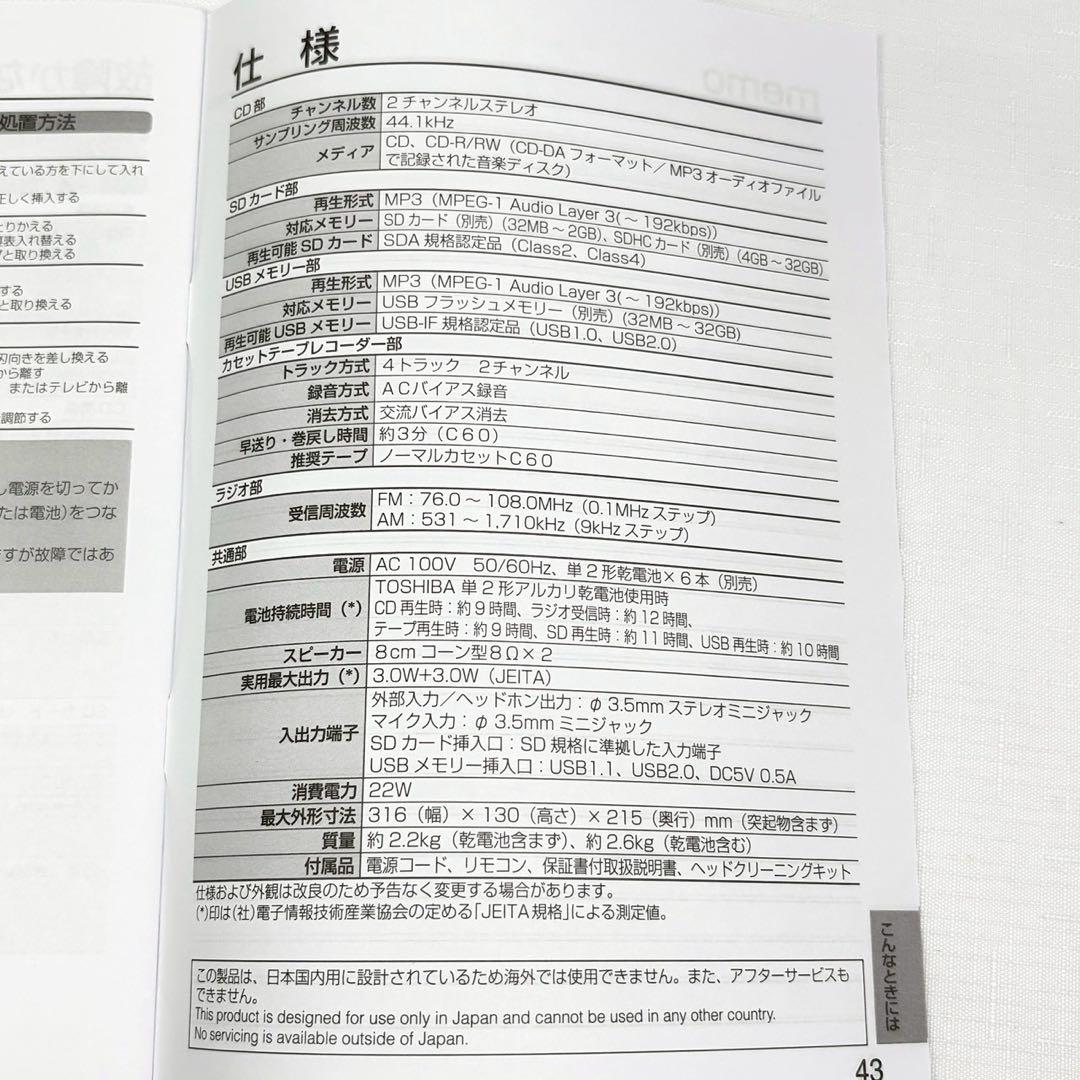 処置方法
えている方を下にして入れ
正しく挿入する
とりかえる
表入れ替える
と取り換える
する
と取り換える
刃向きを差し換える
から離す
またはテレビから離
調節する
し電源を切ってか
たは電池)をつな
すが故障ではあ
仕 様
CD部
チャンネル数 2チャンネルステレオ
サンプリング周波数 44.1kHz
メディア CD、CD-R/RW（CD-DAフォーマット／MP3オーディオファイル
で記録された音楽ディスク）
SDカード部
再生形式 MP3（MPEG-1 Audio Layer 3(～192kbps)）
対応メモリー SDカード（別売）（32MB～2GB）、SDHCカード（別売）（4GB～32GB）
再生可能SDカード SDA規格認定品（Class2、Class4）
USBメモリー部
再生形式 MP3（MPEG-1 Audio Layer 3(～192kbps)）
対応メモリー USBフラッシュメモリー（別売）（32MB～32GB）
再生可能USBメモリー USB-IF規格認定品（USB1.0、USB2.0）
カセットテープレコーダー部
トラック方式 4トラック 2チャンネル
録音方式 ACバイアス録音
消去方式 交流バイアス消去
早送り・巻戻し時間 約3分（C60）
推奨テープ ノーマルカセットC60
ラジオ部
受信周波数 FM：76.0～108.0MHz（0.1MHzステップ）
AM：531～1,710kHz（9kHzステップ）
共通部
電源 AC 100V 50/60Hz、単2形乾電池×6本（別売）
電池持続時間（*） TOSHIBA単2形アルカリ乾電池使用時
CD再生時：約9時間、ラジオ受信時：約12時間、
テープ再生時：約9時間、SD再生時：約11時間、USB再生時：約10時間
スピーカー 8cmコーン型8Ω×2
実用最大出力（*） 3.0W+3.0W（JEITA）
入出力端子 外部入力／ヘッドホン出力：φ3.5mmステレオミニジャック
マイク入力：φ3.5mmミニジャック
SDカード挿入口：SD規格に準拠した入力端子
USBメモリー挿入口：USB1.1、USB2.0、DC5V 0.5A
消費電力 22W
最大外形寸法 316（幅）×130（高さ）×215（奥行）mm（突起物含まず）
質量 約2.2kg（乾電池含まず）、約2.6kg（乾電池含む）
付属品 電源コード、リモコン、保証書付取扱説明書、ヘッドクリーニングキット
仕様および外観は改良のため予告なく変更する場合があります。
(*)印は(社)電子情報技術産業協会の定める「JEITA規格」による測定値。
この製品は、日本国内用に設計されているため海外では使用できません。また、アフターサービスも
できません。
This product is designed for use only in Japan and cannot be used in any other country.
No servicing is available outside of Japan.
こんなときには
43